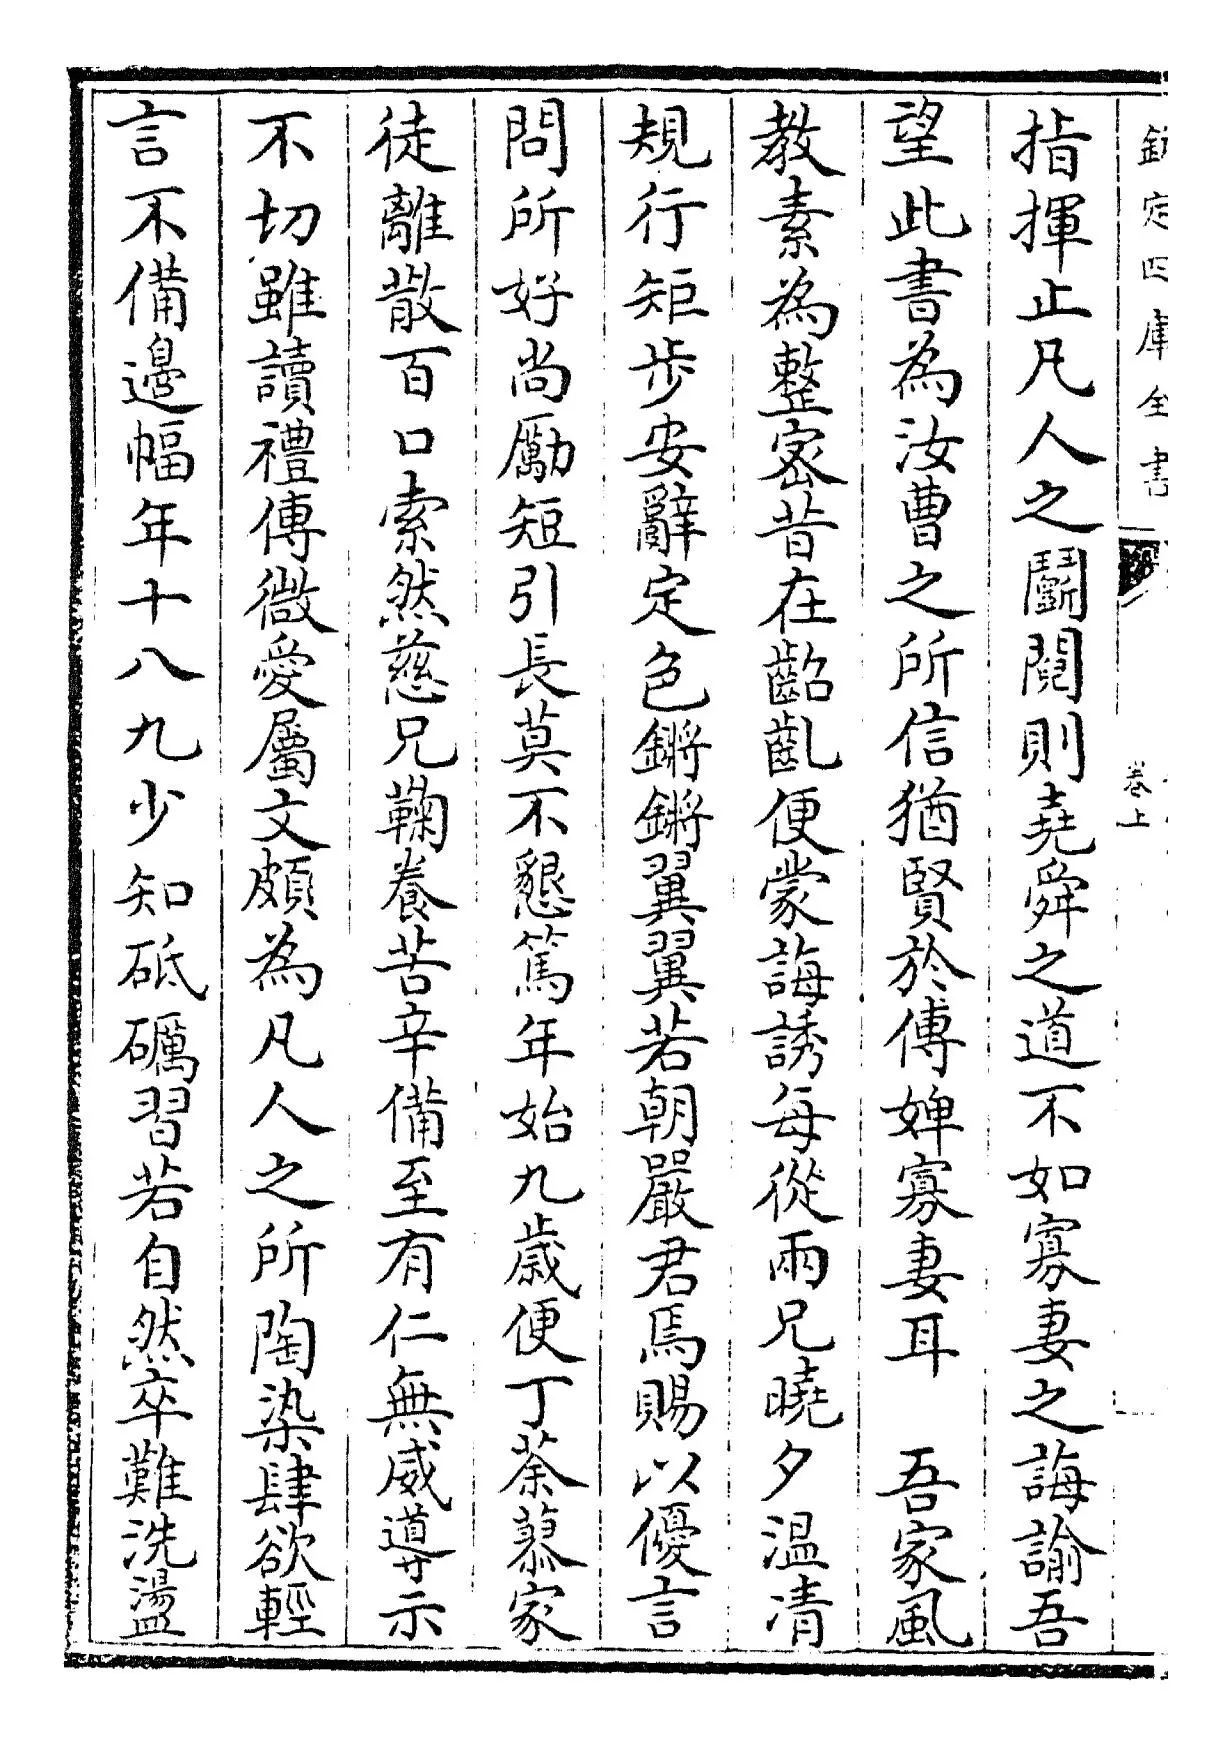 欽定四庫全書
卷上
指揮止凡人之鬭鬩則堯舜之道不如寡妻之誨諭吾
望此書為汝曹之所信猶賢於傅婢寡妻耳　吾家風
教素為整密昔在齠齓便蒙誨誘每從兩兄曉夕温凊
規行矩步安辭定色鏘鏘翼翼若朝嚴君焉賜以優言
問所好尚勵短引長莫不懇篤年始九歲便丁荼蓼家
徒離散百口索然慈兄鞠養苦辛備至有仁無威導示
不切雖讀禮傳微愛屬文頗為凡人之所陶染肆欲輕
言不備邊幅年十八九少知砥礪習若自然卒難洗盪